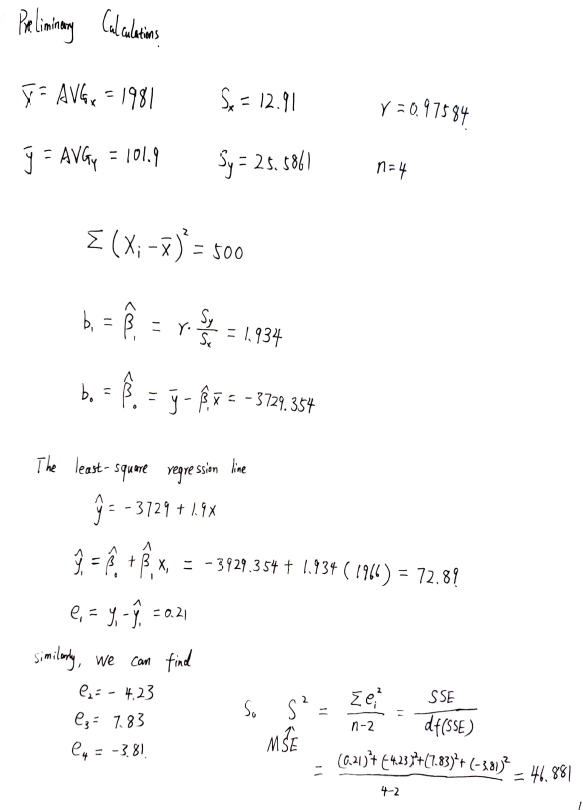 Preliminary Calculations
x̄ = AVGₓ = 1981 Sₓ = 12.91 r = 0.97584
ȳ = AVGᵧ = 101.9 Sᵧ = 25.5861 n = 4
Σ(Xᵢ - x̄)² = 500
b₁ = β̂₁ = r · Sᵧ/Sₓ = 1.934
b₀ = β̂₀ = ȳ - β̂₁x̄ = -3729.354
The least-square regression line
ŷ = -3729 + 1.9x
ŷ₁ = β̂₀ + β̂₁x₁ = -3929.354 + 1.934(1966) = 72.89
e₁ = y₁ - ŷ₁ = 0.21
similarly, we can find
e₂ = -4.23
e₃ = 7.83
e₄ = -3.81
So S² = Σeᵢ²/(n-2) = SSE/df(SSE)
↑
MSE
= ((0.21)² + (-4.23)² + (7.83)² + (-3.81)²)/(4-2) = 46.881